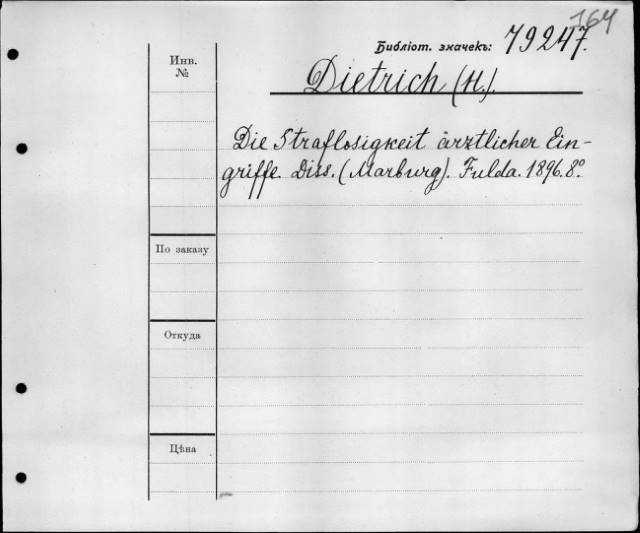 764
Библіот. значекъ: 79247.
Инв.
№
Dietrich (H.).
Die Straflosigkeit ärztlicher Ein-
griffe. Diss. (Marburg). Fulda. 1896. 8°.
По заказу
Откуда
Цѣна